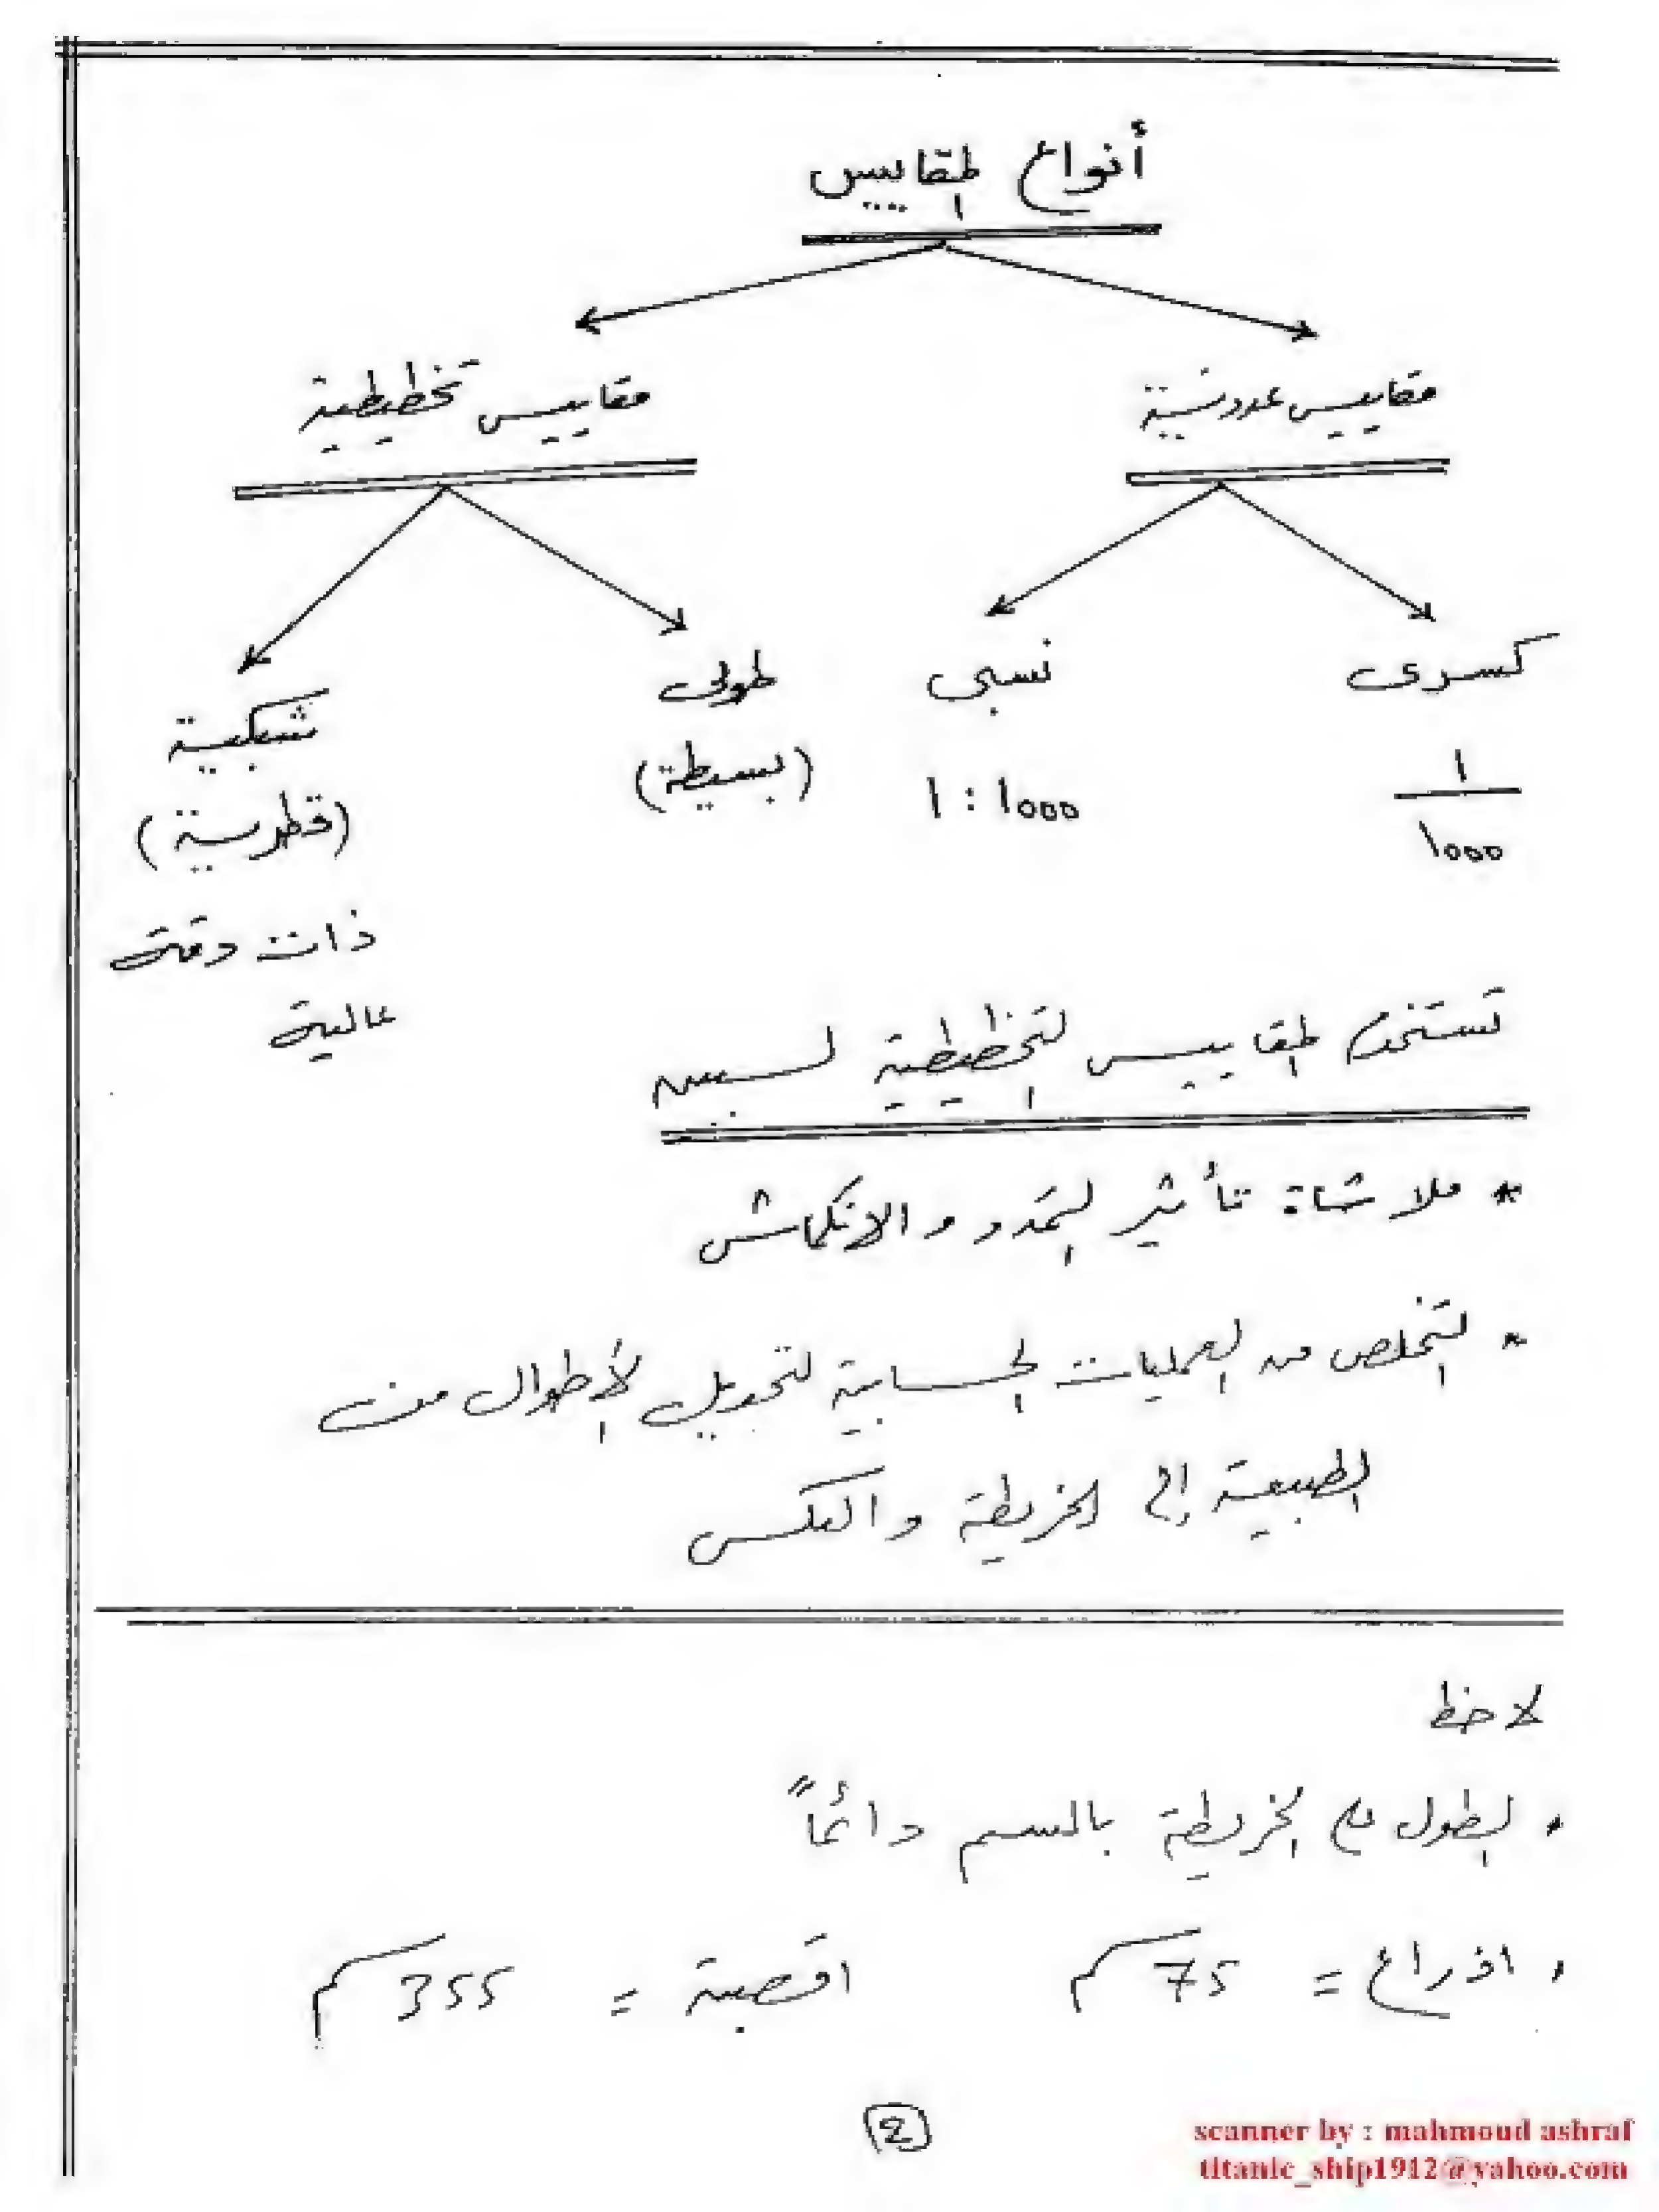 أنواع المقاييس
مقاييس عددية
مقاييس تخطيطية
كسرى
نسبى
طولى
شبكية
1
1000
1 : 1000
(بسيطة)
(قطرية)
ذات دقة
عالية
تستخدم المقاييس التخطيطية لسببين
* ملاشاة تأثير التمدد والانكماش
* التخلص من العمليات الحسابية لتحويل الأطوال من
الطبيعة إلى الخريطة والعكس
لاحظ
• الطول على الخريطة بالسم دائماً
• 1 ذراع = 75 سم 1 قصبة = 355 سم
2
scanner by : mahmoud ashraf
titanic_ship1912@yahoo.com